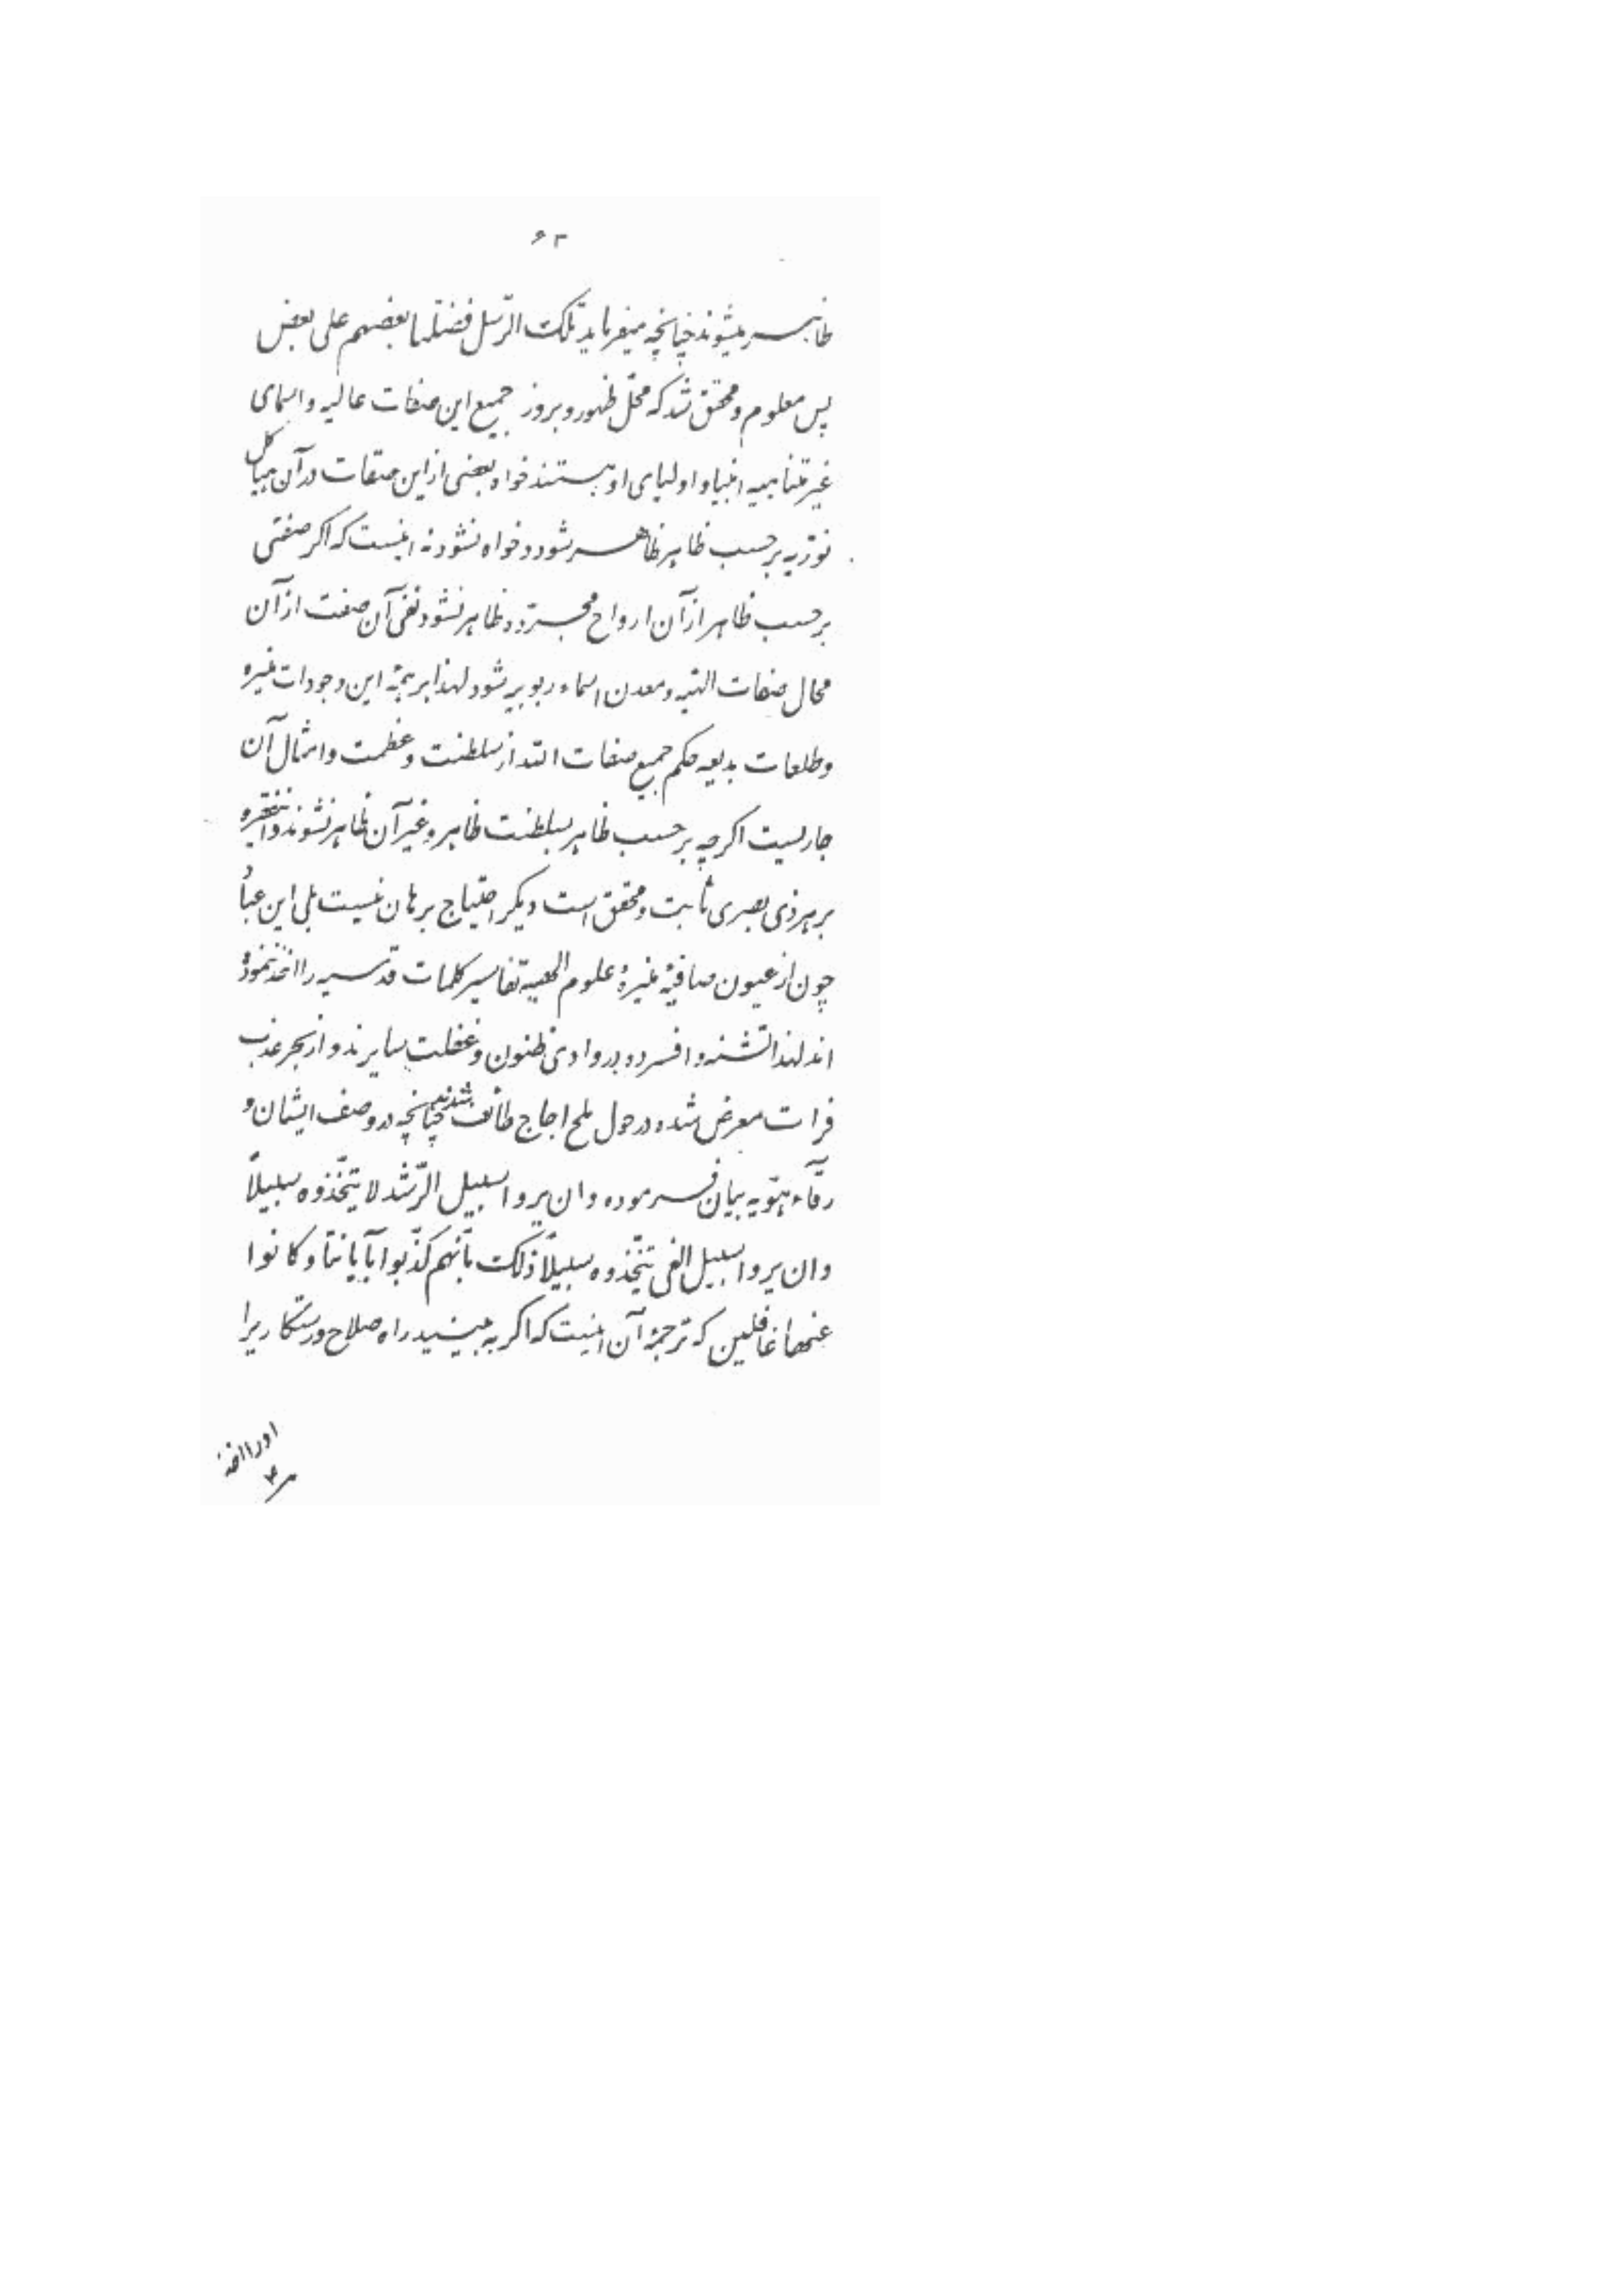 ۶۳
ظاهر میشوند چنانچه میفرماید تلک الرّسل فضّلنا بعضهم علی بعض
پس معلوم و محقق شد که محلّ ظهور و بروز جمیع این صفات عالیه و اسمای
غیر متناهیه انبیا و اولیای او هستند خواه بعضی از این صفات در آن هیاکل
نوریّه بر حسب ظاهر ظاهر شود و خواه نشود نه اینست که اگر صفتی
بر حسب ظاهر از آن ارواح مجرّده ظاهر نشود نفی آن صفت از آن
محال صفات الهیّه و معدن اسماء ربوبیه شود لهذا بر همهٔ این وجودات منیره
و طلعات بدیعه حکم جمیع صفات الله از سلطنت و عظمت و امثال آن
جاریست اگرچه بر حسب ظاهر بسلطنت ظاهره و غیر آن ظاهر نشوند و این فقره
بر هر ذی بصری ثابت و محقق است دیگر احتیاج برهان نیست بلی این عباد
چون از عیون صافیهٔ منیرهٔ علوم الهیه تفاسیر کلمات قدسیه را اخذ ننموده
اند لهذا تشنه و افسرده در وادی ظنون و غفلت سایرند و از بحر عذب
فرات معرض شده در حول ملح اجاج طائف شدند چنانچه در وصف ایشان و
رقاء هویّه بیان فرموده و ان یروا سبیل الرّشد لا یتّخذوه سبیلاً
و ان یروا سبیل الغی یتّخذوه سبیلاً ذلک بأنّهم کذّبوا بآیاتنا و کانوا
عنها غافلین که ترجمهٔ آن اینست که اگر به بینید راه صلاح و رستگاریرا
اورا اخذ